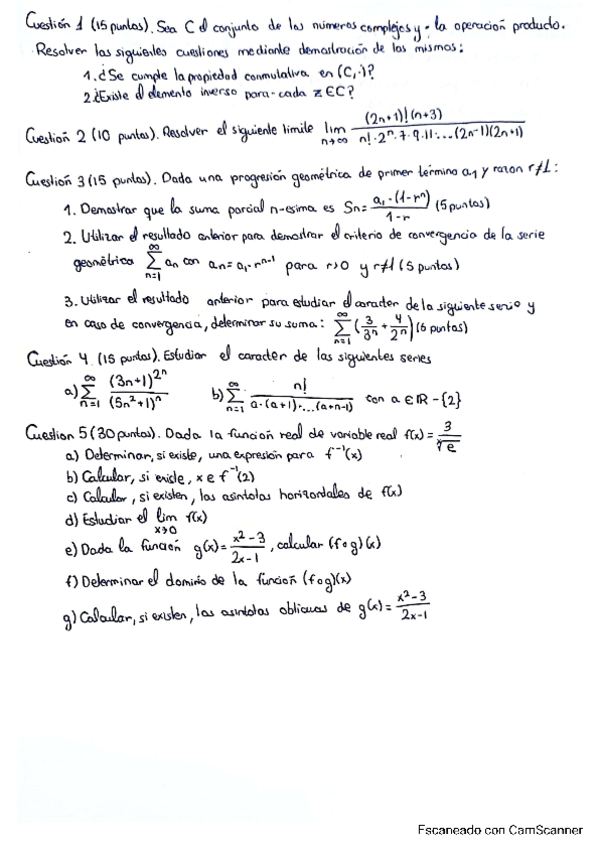 Cuestión 1 (15 puntos). Sea C el conjunto de los números complejos y · la operación producto.
Resolver las siguientes cuestiones mediante demostración de las mismas:
1. ¿Se cumple la propiedad conmutativa en (C,·)?
2. ¿Existe el elemento inverso para cada z ∈ C?
Cuestión 2 (10 puntos). Resolver el siguiente límite lim n→∞ (2n+1)!(n+3) / n!·2^n·7·9·11·...·(2n-1)(2n+1)
Cuestión 3 (15 puntos). Dada una progresión geométrica de primer término a₁ y razon r≠1:
1. Demostrar que la suma parcial n-esima es Sn = a₁·(1-r^n) / 1-r (5 puntos)
2. Utilizar el resultado anterior para demostrar el criterio de convergencia de la serie
geométrica ∑ n=1 ∞ an con an = a₁·r^(n-1) para r>0 y r≠1 (5 puntos)
3. Utilizar el resultado anterior para estudiar el caracter de la siguiente serie y
en caso de convergencia, determinar su suma: ∑ n=1 ∞ (3/3^n + 4/2^n) (6 puntos)
Cuestión 4. (15 puntos). Estudiar el caracter de las siguientes series
a) ∑ n=1 ∞ (3n+1)^2n / (5n²+1)^n b) ∑ n=1 ∞ n! / a·(a+1)·...(a+n-1) con a ∈ IR - {2}
Cuestion 5 (30 puntos). Dada la función real de variable real f(x) = 3 / ˣ√e
a) Determinar, si existe, una expresión para f⁻¹(x)
b) Calcular, si existe, x e f⁻¹(2)
c) Calcular, si existen, las asíntotas horizontales de f(x)
d) Estudiar el lim x→0 f(x)
e) Dada la función g(x) = x²-3 / 2x-1, calcular (f∘g)(x)
f) Determinar el dominio de la función (f∘g)(x)
g) Calcular, si existen, las asíntotas oblicuas de g(x) = x²-3 / 2x-1
Escaneado con CamScanner